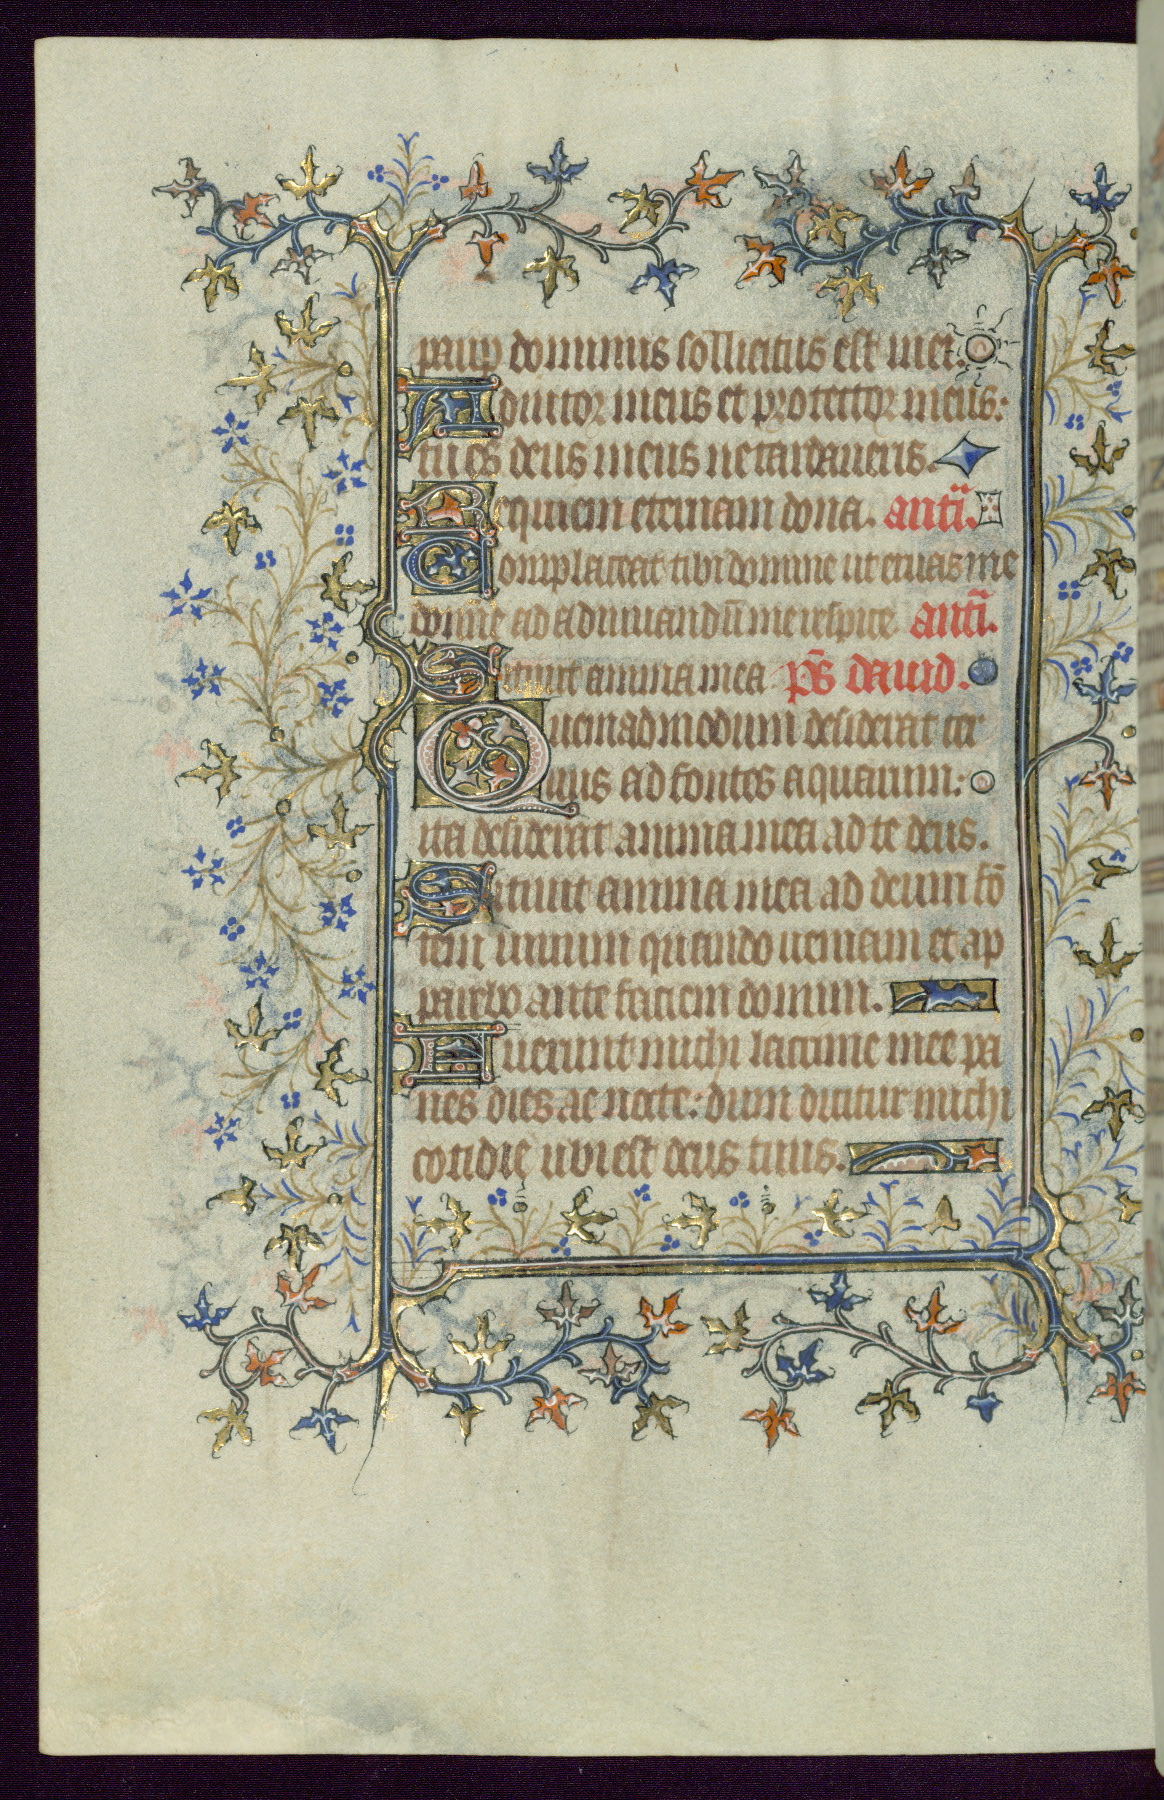 paup dominus sollicitus est mei.
Adiutor meus et protector meus:
tu es deus meus ne tardaueris.
Requiem eternam dona. antī.
Complaceat tibi domine ut eruas me
domīe ad adiuuandū me respice antī.
Sitiuit anima mea ps̄ dauid.
Quemadmodum desiderat cer
uus ad fontes aquarum:
ita desiderat anima mea ad te deus.
Sitiuit anima mea ad deum fō
tem uiuum quando ueniam et ap
parebo ante faciem domini.
Fuerunt michi lacrime mee pa
nes dies ac nocte: dum dicitur michi
cotidie ubi est deus tuus.